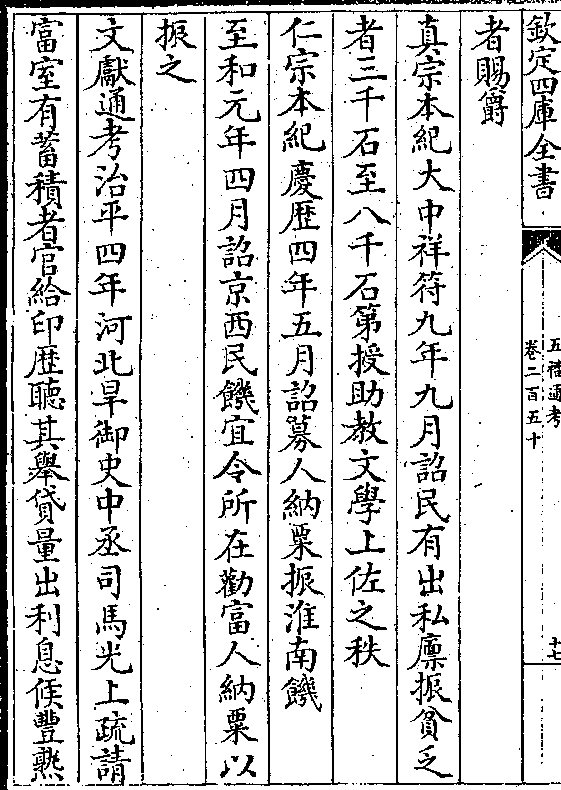 欽定四庫全書
五禮通考
卷二百五十
十七
者賜爵
真宗本紀大中祥符九年九月詔民有出私廩振貧乏
者三千石至八千石第授助教文學上佐之秩
仁宗本紀慶歴四年五月詔募人納粟振淮南饑
至和元年四月詔京西民饑宜令所在勸富人納粟以
振之
文獻通考治平四年河北旱御史中丞司馬光上疏請
富室有蓄積者官給印歴聽其舉貸量出利息候豐熟